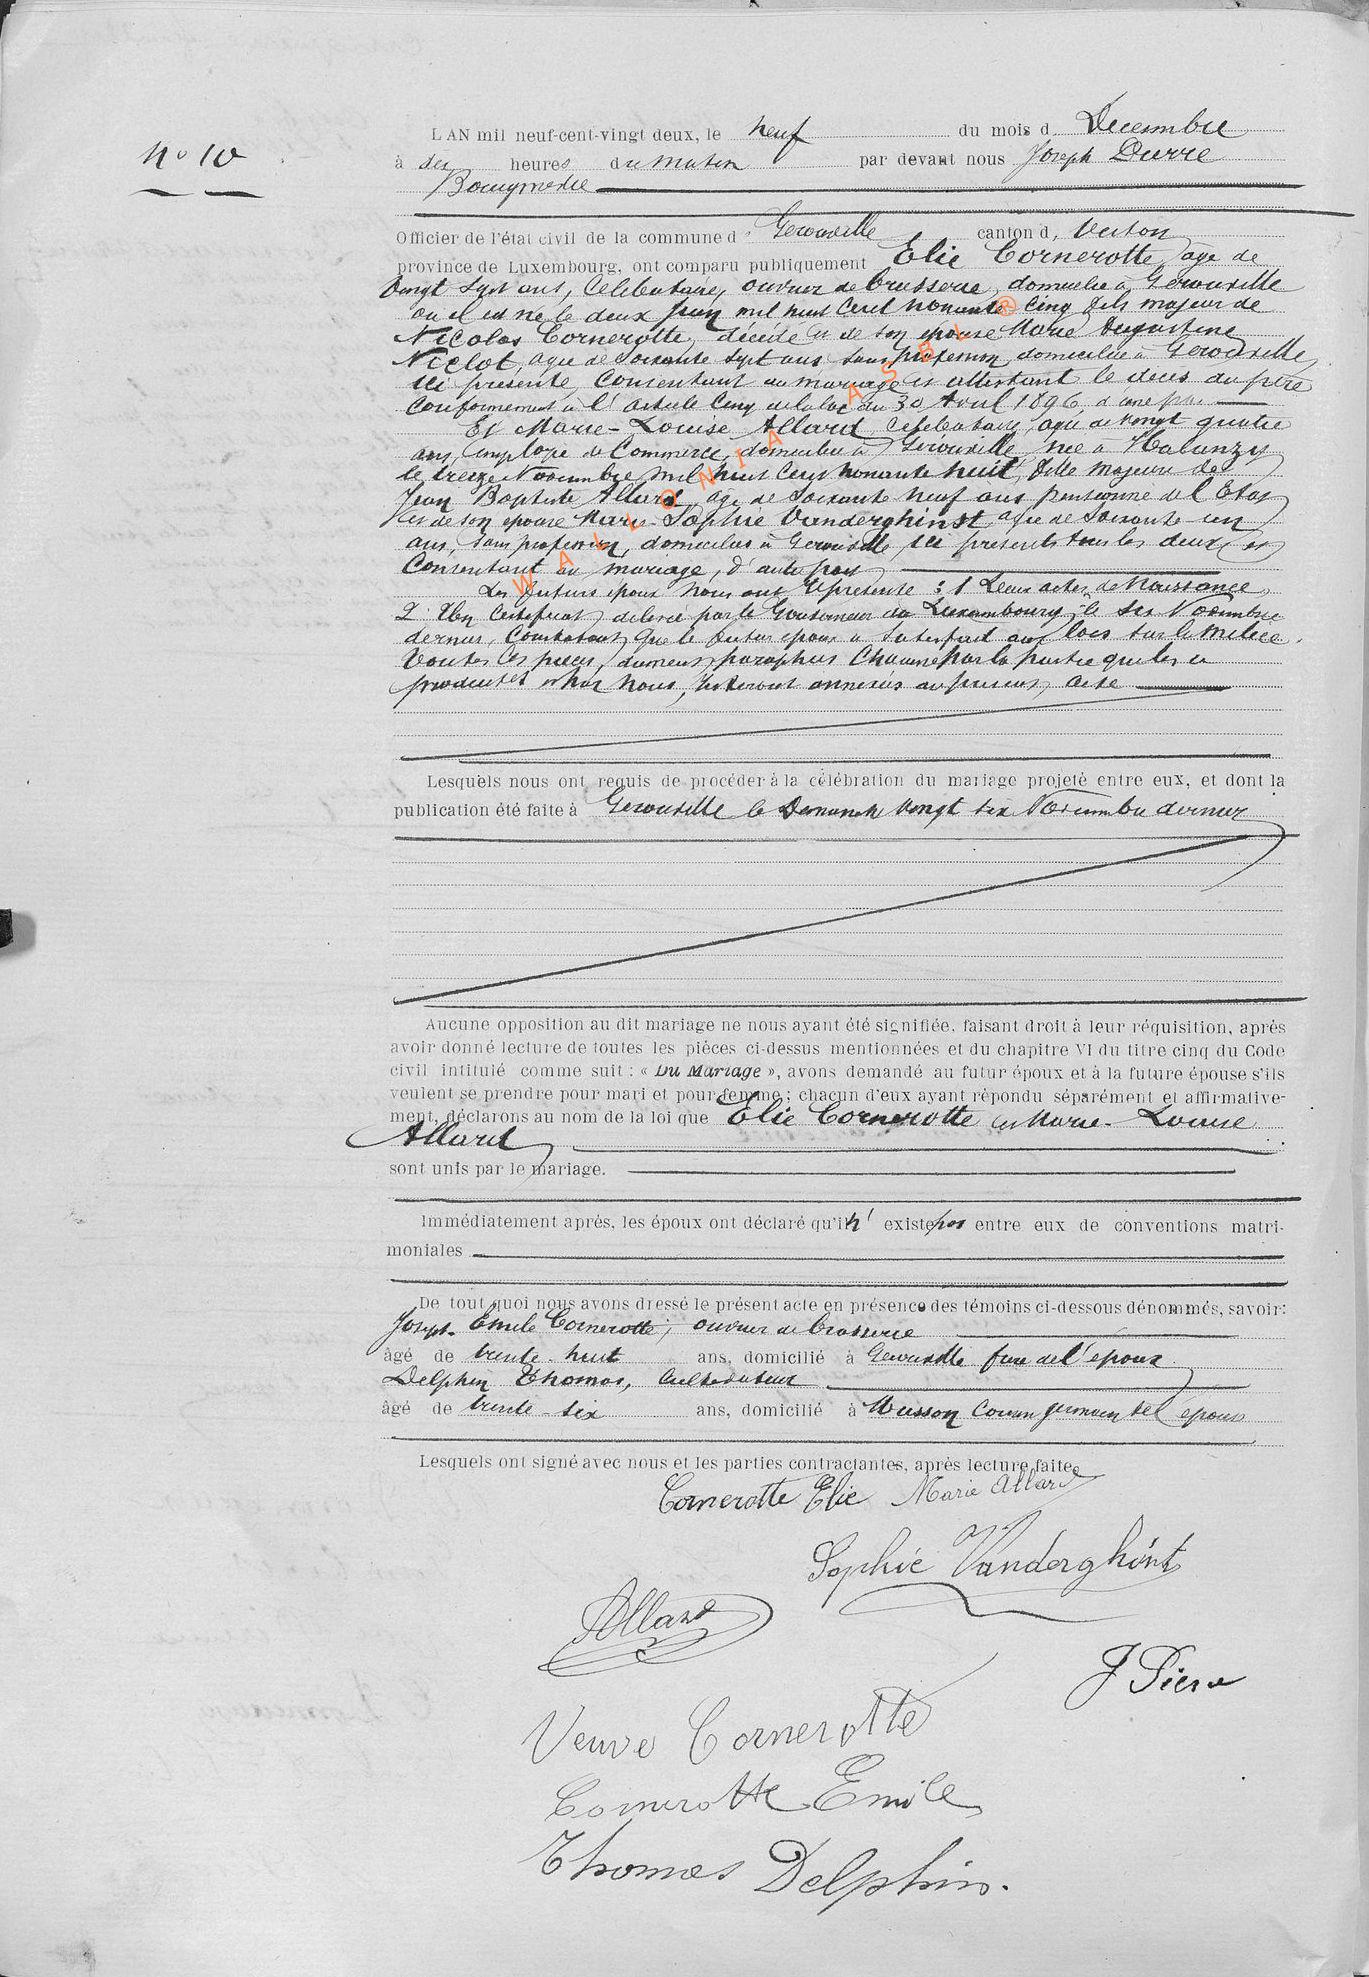 No 10
L'AN mil neuf-cent-vingt deux, le neuf du mois d Decembre
à dix heures du matin par devant nous Joseph Pierre
Bourgmestre
Officier de l'état civil de la commune d Gerouville canton d, Virton
province de Luxembourg, ont comparu publiquement Elie Cornerotte, age de
vingt sept ans, Celibataire, ouvrier de brasserie, domicilie à Gerouville
ou il est ne le deux juin mil huit cent nonante cinq fils majeur de
Nicolas Cornerotte, décédé et de son epouse Marie Augustine
Niclot, agee de soixante sept ans sans profession, domiciliee à Gerouville
ici presente, Consentant au mariage et attestant le deces du père
Conformement à l'article Cinq de la loi du 30 Avril 1896, d'une part
Et Marie-Louise Allard Celibataire, agee de vingt quatre
ans, employee de Commerce, domiciliee à Gerouville nee à Halanzy
le treize Novembre mil huit cent nonante huit, fille majeure de
Jean Baptiste Allard, age de soixante neuf ans pensionne de l'Etat
et de son epouse Marie-Sophie Vanderghinst agee de soixante un
ans, sans profession, domicilies à Gerouville ici présents tous les deux et
Consentant au mariage, d'autre part
Les futurs epoux nous ont représente : 1 Leurs actes de Naissance
2 Un Certificat, delivré par le Gouverneur du Luxembourg, le six Novembre
dernier, Constatant que le futur epoux a satisfait aux lois sur la milice.
Toutes ces pieces, dument paraphees Chacune par la partie qui les a
produites et par nous, resteront annexées au present acte
Lesquels nous ont requis de procéder à la célébration du mariage projeté entre eux, et dont la
publication été faite à Gerouville le Dimanche vingt six Novembre dernier
Aucune opposition au dit mariage ne nous ayant été signifiée, faisant droit à leur réquisition, après
avoir donné lecture de toutes les pièces ci-dessus mentionnées et du chapitre VI du titre cinq du Code
civil intitulé comme suit : « Du Mariage », avons demandé au futur époux et à la future épouse s'ils
veulent se prendre pour mari et pour femme ; chacun d'eux ayant répondu séparément et affirmative-
ment, déclarons au nom de la loi que Elie Cornerotte et Marie-Louise
Allard
sont unis par le mariage.
Immédiatement après, les époux ont déclaré qu'il n' existe pas entre eux de conventions matri-
moniales
De tout quoi nous avons dressé le présent acte en présence des témoins ci-dessous dénommés, savoir:
Joseph-Emile Cornerotte, ouvrier de brasserie
âgé de trente-huit ans, domicilié à Gerouville frere de l'époux
Delphin Thomas, Cultivateur
âgé de trente-six ans, domicilié à Musson Cousin germain de l'epoux
Lesquels ont signé avec nous et les parties contractantes, après lecture faite.
Cornerotte Elie Marie Allard
Sophie Vanderghinst
Allard
J Pierre
Veuve Cornerotte
Cornerotte Emile
Thomas Delphin.
WALLONIA ASBL ®